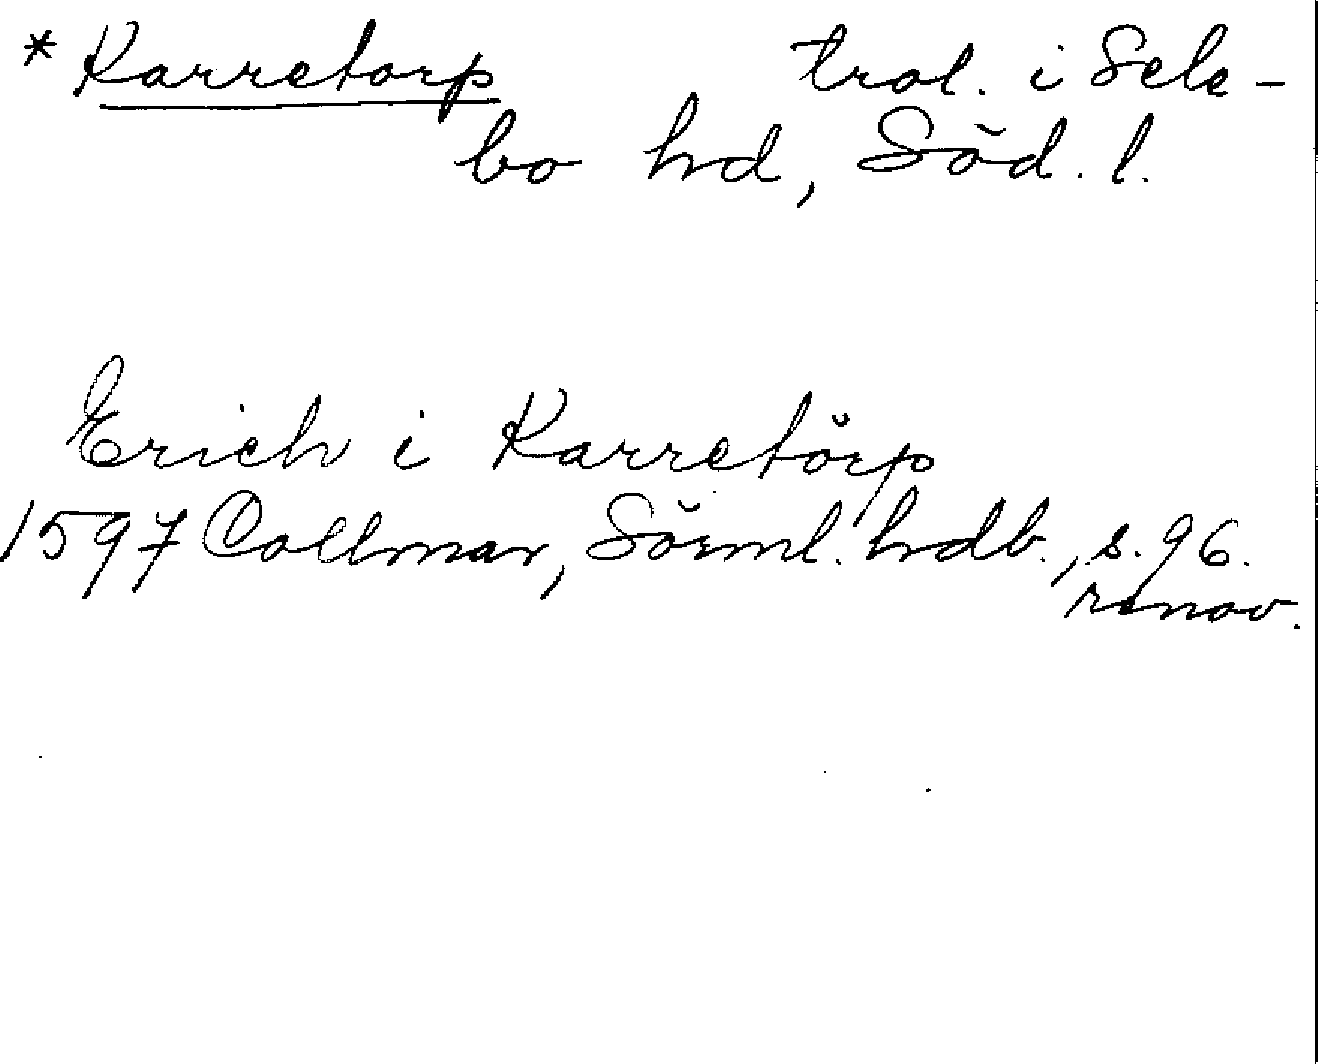 * Karretorp trol. i Sele-
bo hd, Söd. l.
Erich i Karretörp
1597 Collmar, Sörml. hdb., s. 96.
renov.